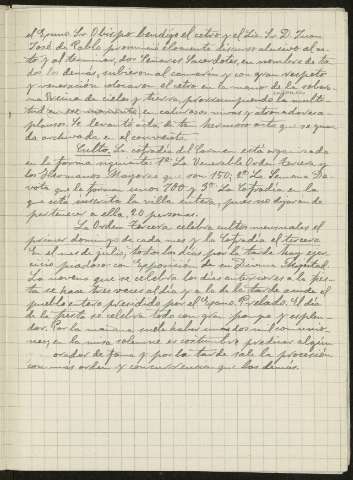 el Exmo. Sr. Obispo bendigo el cetro y el Lic. Sr. D. Juan
José de Pablo pronunció elocuente discurso alusivo al ac-
to y al terminar, dos Señores Sacerdotes, en nombre de to-
dos los demás, subieron al camarín y con gran respeto
y veneración colocaron el cetro en la mano de la sobera-
na Reina de cielos y tierra, prorrumpiendo la multi-
tud en ese momento en calurosos vivas y atronadores a
plausos. Se levantó acta de tan hermoso acto que se guar-
da archivada en el convento.
Culto. La cofradía del Carmen está organizada
en la forma siguiente: 1º La Venerable Orden tercera y
los Hermanos Mayores que son 150; 2º La Semana De-
vota que la forman unos 700 y 3º La Cofradía en la
que está inscrita la villa entera, pues no dejarán de
pertenecer a ella, 20 personas.
La Orden tercera celebra cultos mensuales el
primer domingo de cada mes y la Cofradía el tercero.
En el mes de julio, todos los días por la tarde hay ejer-
cicio piadoso con exposición de su Divina Majestad.
La novena que se celebra los días anteriores a la fies-
ta se hace tres veces al día y a la de la tarde acude el
pueblo entero presidido por el Exmo. Prelado. El día
de la fiesta se celebra todo con gran pompa y esplen-
dor. Por la mañana suele haber unas dos mil comunio-
nes; en la misa solemne es costumbre predicar algún
orador de fama y por la tarde sale la procesión
con más orden y concurrencia que las demás.